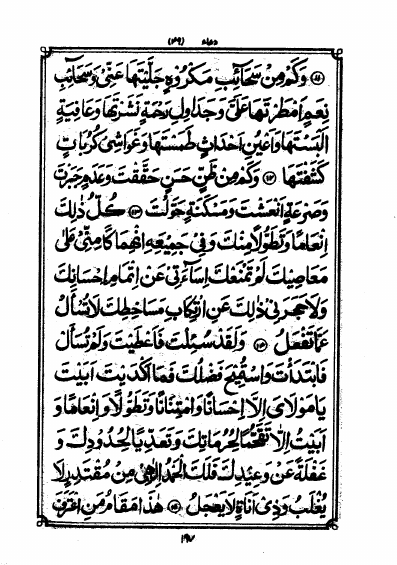 دعاء (٤٩)
(١١) وَكَمْ مِنْ سَحَائِبِ مَكْرُوهٍ جَلَّيْتَهَا عَنِّي وَسَحَائِبِ
نِعَمٍ أَمْطَرْتَهَا عَلَيَّ وَجَدَاوِلِ رَحْمَةٍ نَشَرْتَهَا وَعَافِيَةٍ
أَلْبَسْتَهَا وَأَعْيُنِ أَحْدَاثٍ طَمَسْتَهَا وَغَوَاشِيَ كُرُبَاتٍ
كَشَفْتَهَا (١٢) وَكَمْ مِنْ ظَنٍّ حَسَنٍ حَقَّقْتَ وَعَدَمٍ جَبَرْتَ
وَصَرْعَةٍ أَنْعَشْتَ وَمَسْكَنَةٍ حَوَّلْتَ (١٣) كُلُّ ذٰلِكَ
إِنْعَامًا وَتَطَوُّلًا مِنْكَ وَفِي جَمِيعِهِ انْهِمَاكًا مِنِّي عَلَى
مَعَاصِيكَ لَمْ تَمْنَعْكَ إِسَاءَتِي عَنْ إِتْمَامِ إِحْسَانِكَ
وَلَا حَجَرَنِي ذٰلِكَ عَنِ ارْتِكَابِ مَسَاخِطِكَ لَا تُسْأَلُ
عَمَّا تَفْعَلُ (١٤) وَلَقَدْ سُئِلْتَ فَأَعْطَيْتَ وَلَمْ تُسْأَلْ
فَابْتَدَأْتَ وَاسْتُمِيحَ فَضْلُكَ فَمَا أَكْدَيْتَ أَبَيْتَ
يَا مَوْلَايَ إِلَّا إِحْسَانًا وَامْتِنَانًا وَتَطَوُّلًا وَإِنْعَامًا وَ
أَبَيْتُ إِلَّا تَقَحُّمًا لِحُرُمَاتِكَ وَتَعَدِّيًا لِحُدُودِكَ وَ
غَفْلَةً عَنْ وَعِيدِكَ فَلَكَ الْحَمْدُ إِلٰهِي مِنْ مُقْتَدِرٍ لَا
يُغْلَبُ وَذِي أَنَاةٍ لَا يَعْجَلُ (١٥) هٰذَا مَقَامُ مَنِ اعْتَرَفَ
١٩٧